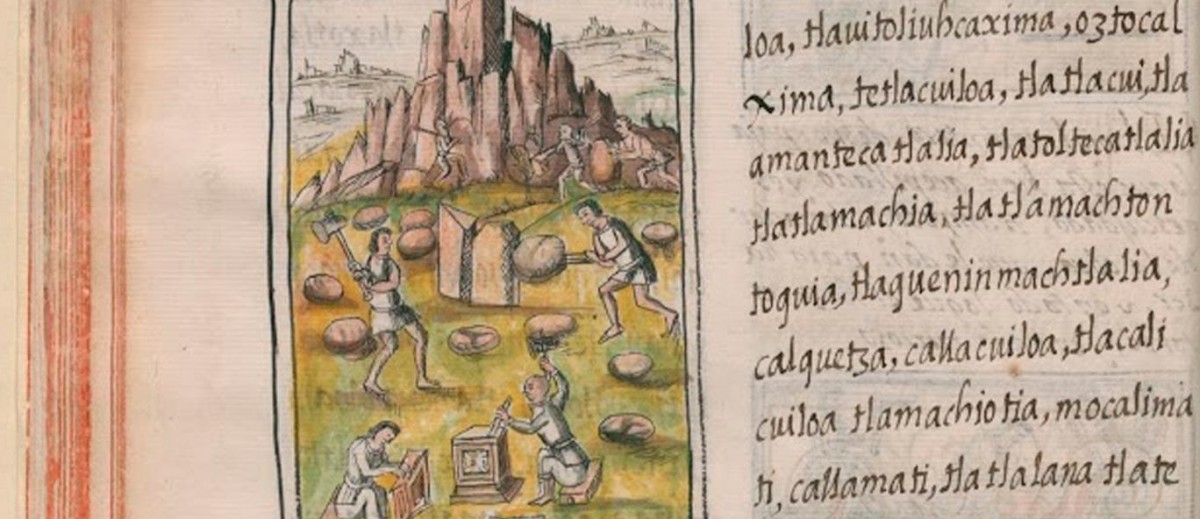 loa, tlauitoliuhcaxima, oztocal
xima, tetlacuiloa, tlatlacui, tla
amanteca tlalia, tlatoltecatlalia
tlatlamachia, tlatlámachton
toquia, tlaqueninmach tlalia,
calquetza, callacuiloa, tlacali
cuiloa tlamachiotia, mocalima
ti, callamati, tla tlalana tlate